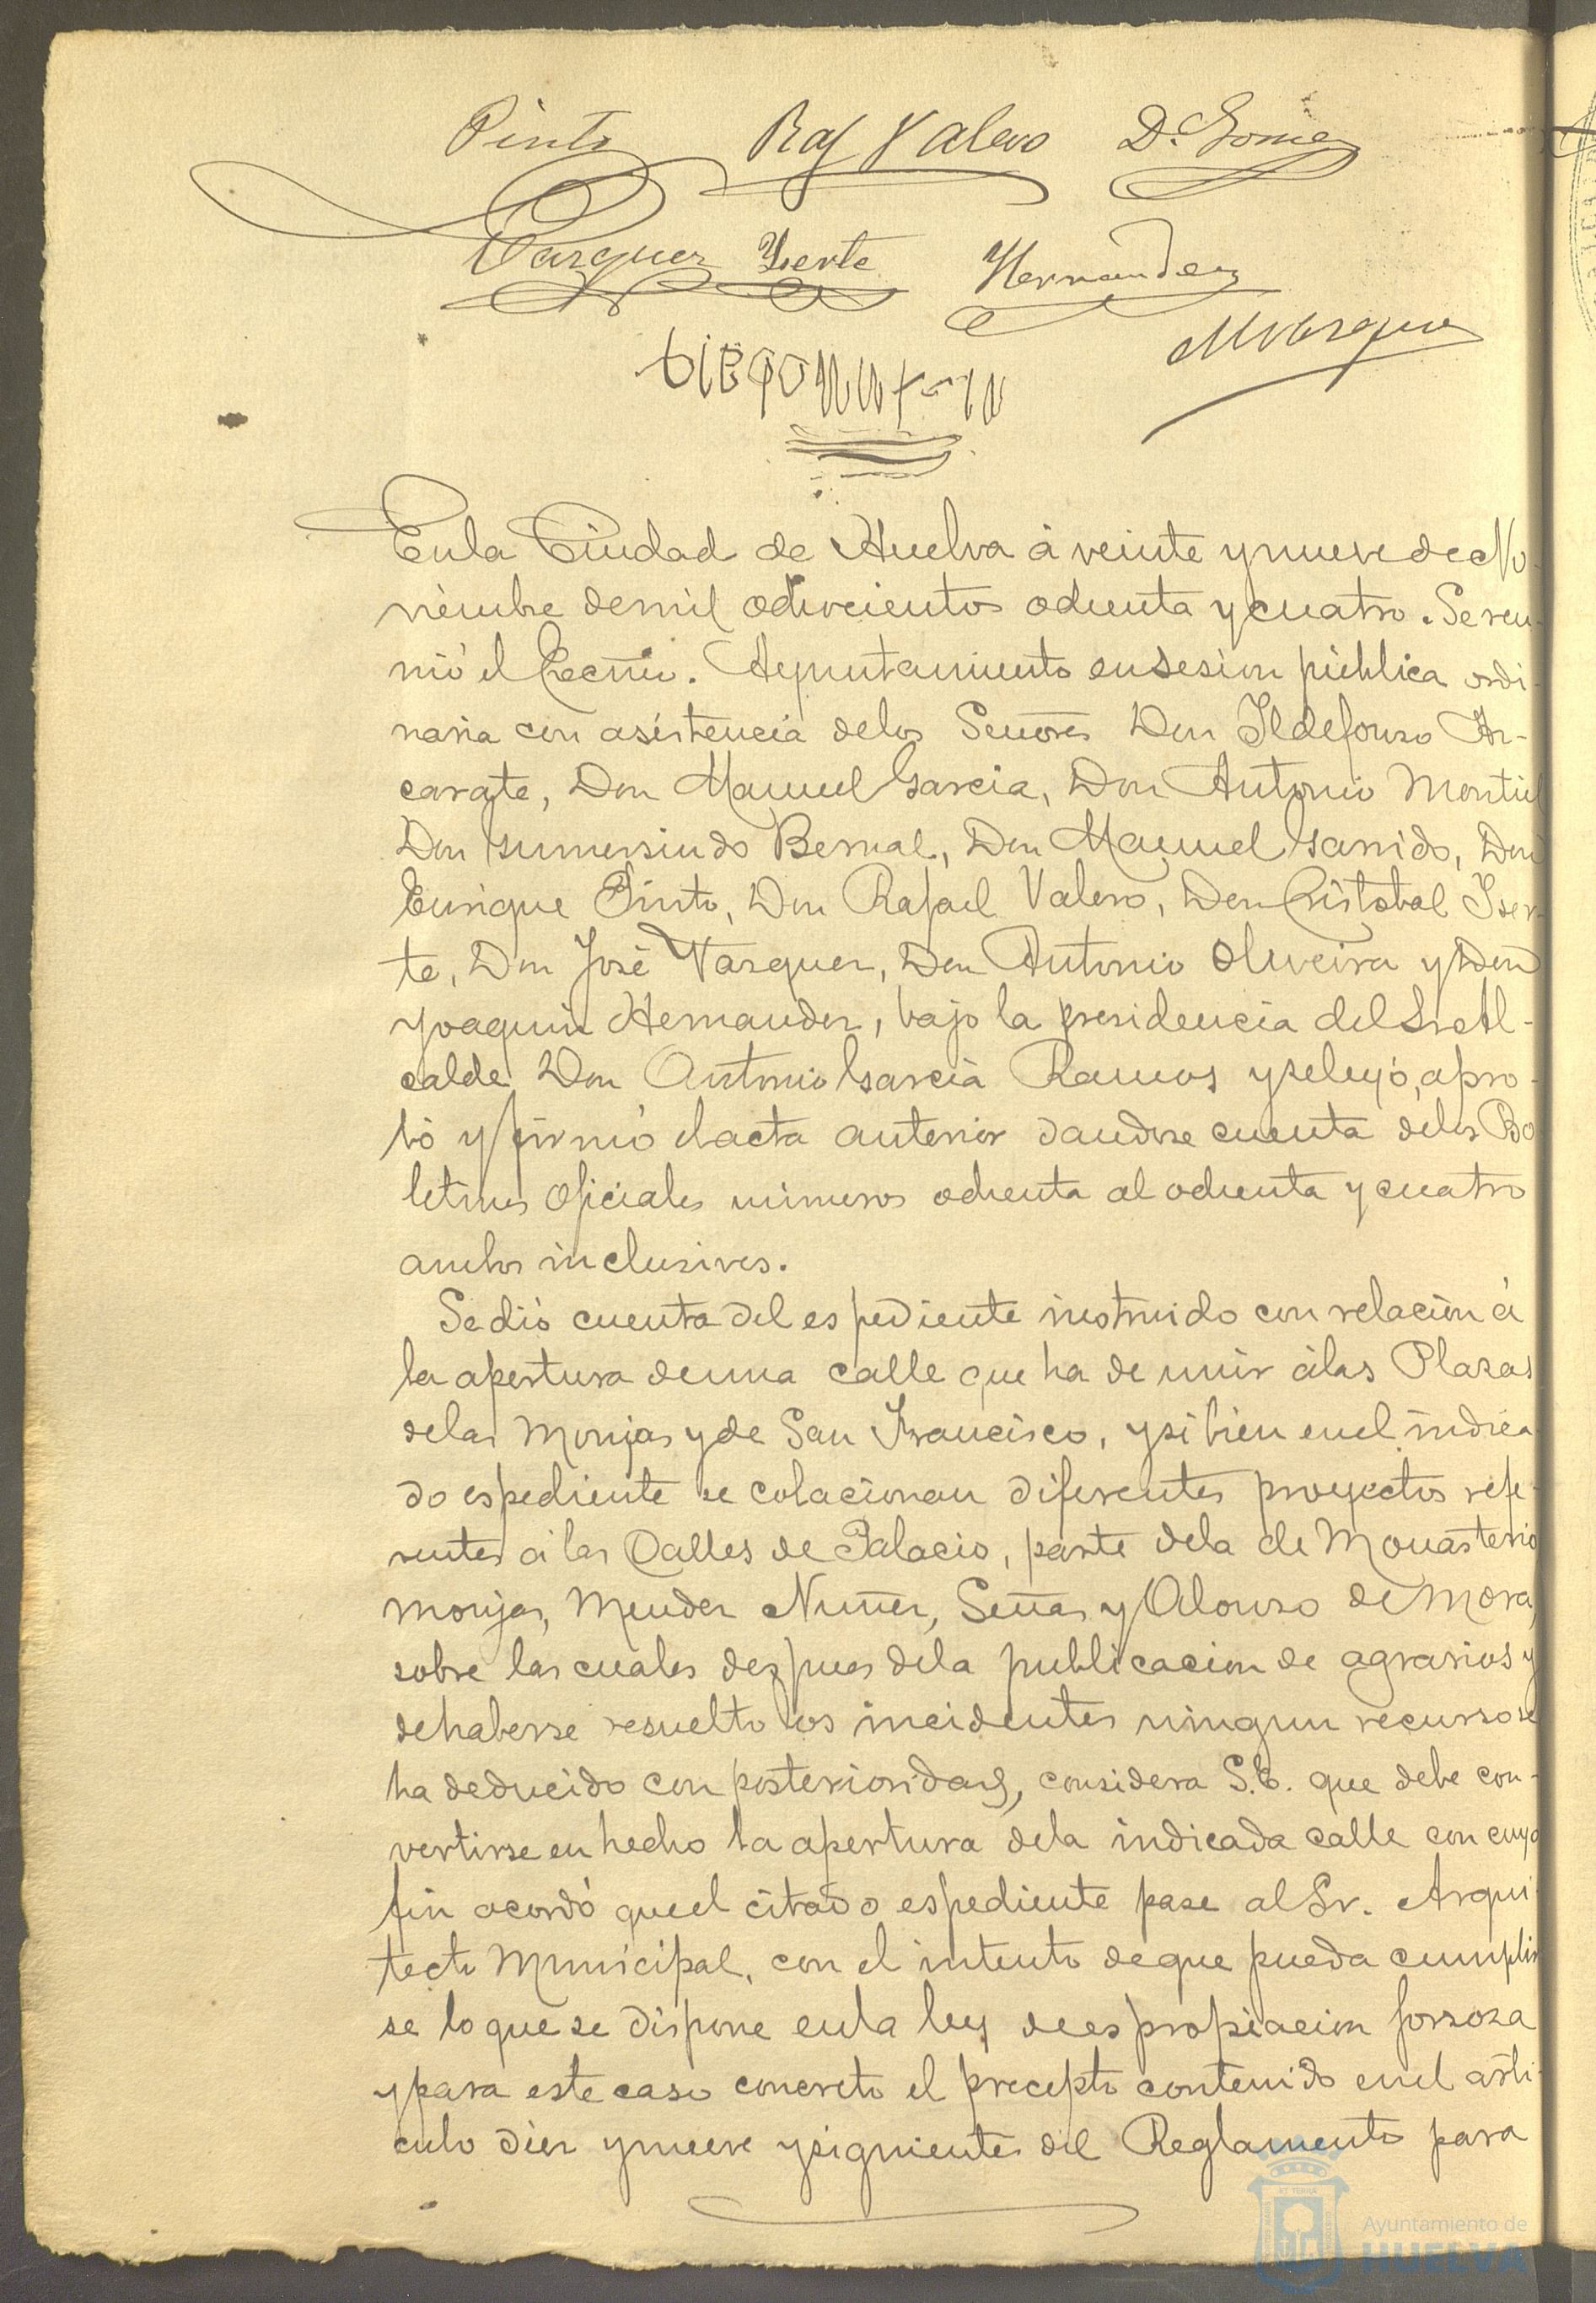 Pinto Raf Valero D.º Gomez
Vazquez Yserte Hernandez
M Vazquez
En la Ciudad de Huelva á veinte y nueve de No-
viembre de mil ochocientos ochenta y cuatro. Se reu-
nió el Ecmo. Ayuntamiento en sesion pública ordi-
naria con asistencia de los Señores Don Ildefonso Az-
carate, Don Manuel Garcia, Don Antonio Montiel
Don Gumersindo Bernal, Don Manuel Garrido, Don
Enrique Pinto, Don Rafael Valero, Don Cristobal Iser-
te, Don José Vazquez, Don Antonio Oliveira y Don
Joaquin Hernandez, bajo la presidencia del Sr Al-
calde Don Antonio Garcia Ramos y se leyó, apro-
bó y firmó el acta anterior dandose cuenta de los Bo
letines Oficiales números ochenta al ochenta y cuatro
ambos inclusives.
Se dió cuenta del espediente instruido con relacion á
la apertura de una calle que ha de unir á las Plazas
de las Monjas y de San Francisco, y si bien en el indica
do espediente se colacionan diferentes proyectos refe-
rentes á las Calles de Palacio, parte de la de Monasterio
Monjas, Mendez Nuñez, Señas y Alonso de Mora,
sobre las cuales despues de la publicacion de agravios y
de haberse resuelto los incidentes ningun recurso se
ha deducido con posterioridad, considera S.E. que debe con-
vertirse en hecho la apertura de la indicada calle con cuyo
fin acordó que el citado espediente pase al Sr. Arqui-
tecto Municipal, con el intento de que pueda cumplir
se lo que se dispone en la ley de espropiacion forzosa
y para este caso concreto el precepto contenido en el artí-
culo diez y nueve y siguientes del Reglamento para
Ayuntamiento de
HUELVA